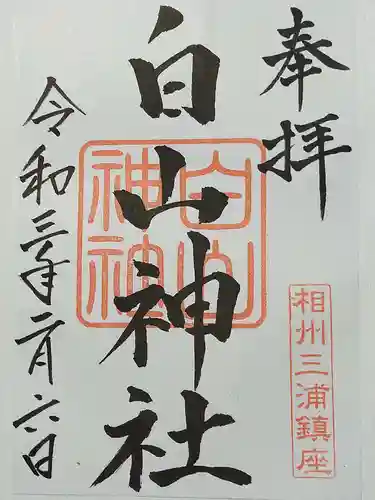 奉拝
相州三浦鎮座
白山神社
白山神社
令和三年二月六日